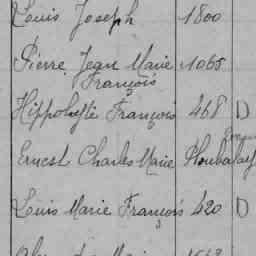 Louis Joseph 1800
Pierre Jean Marie 1065
François
Hippolyte François 468 D
Ernest Charles Marie Ploubalay
Louis Marie François 420 D